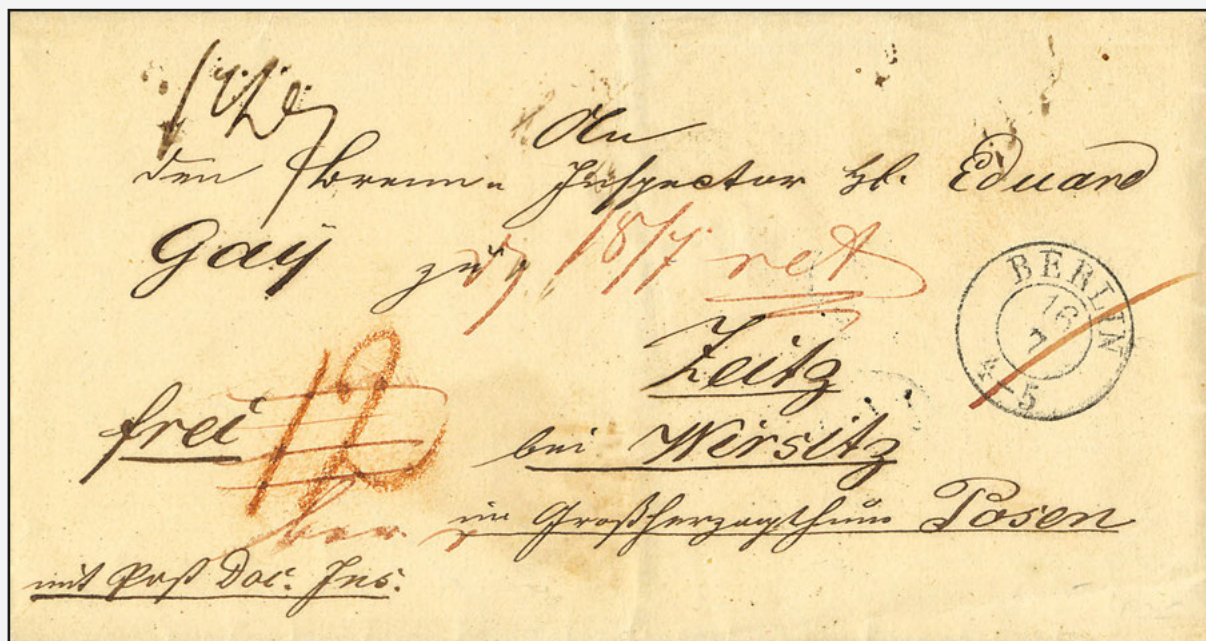 An
den Brenn- Inspector H. Eduard
Gay zu 18/7 ret
BERLIN
16
7
4-5
Zeitz
frei 12
bei Wirsitz
im Großherzogthum Posen
mit Post Doc. Ins.